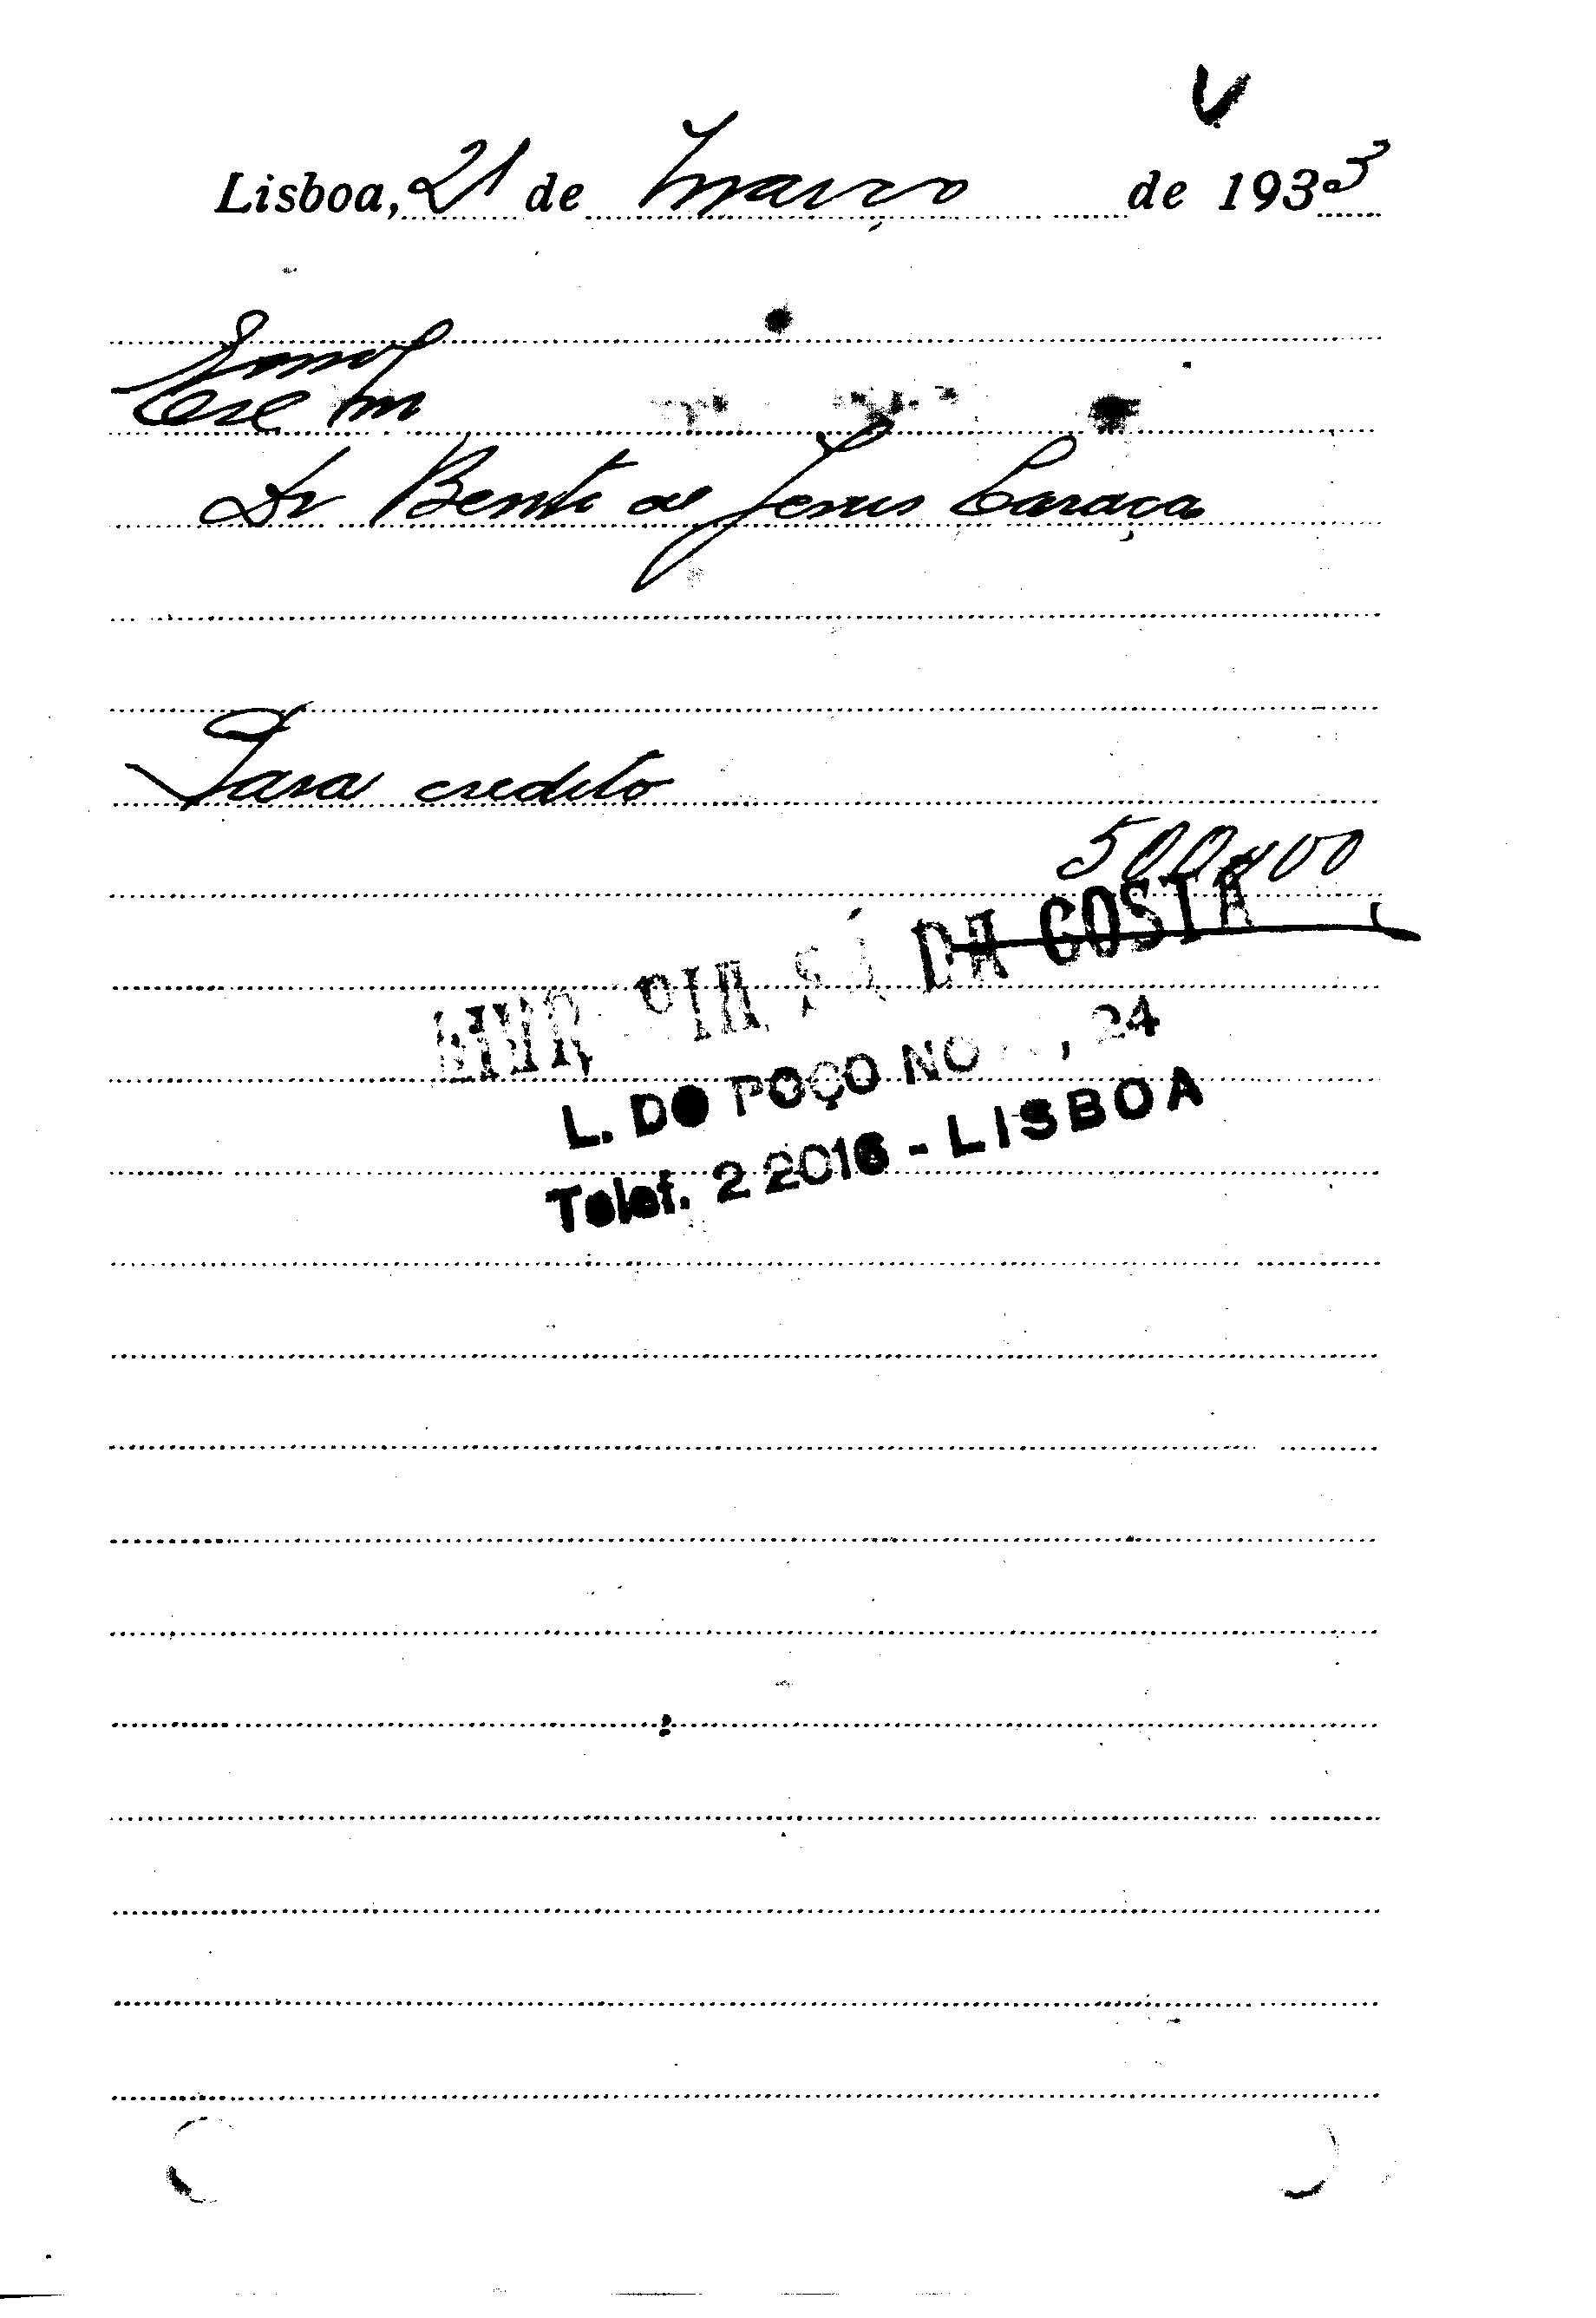 Lisboa, 21 de Março de 1933
Exmo
Dr Bento de Jesus Caraça
Para credito
500$00
SÁ DA COSTA
L. DO POÇO NO , 24
Telef. 2 2016 - LISBOA